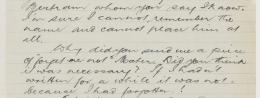 Bertram whom you say I know.
I'm sure I cannot remember the
name and cannot place him at
all.
Why did you send me a piece
of forget me not Mother. Did you think
it was necessary? If I hadn't
written for a while it was not
because I had forgotten!